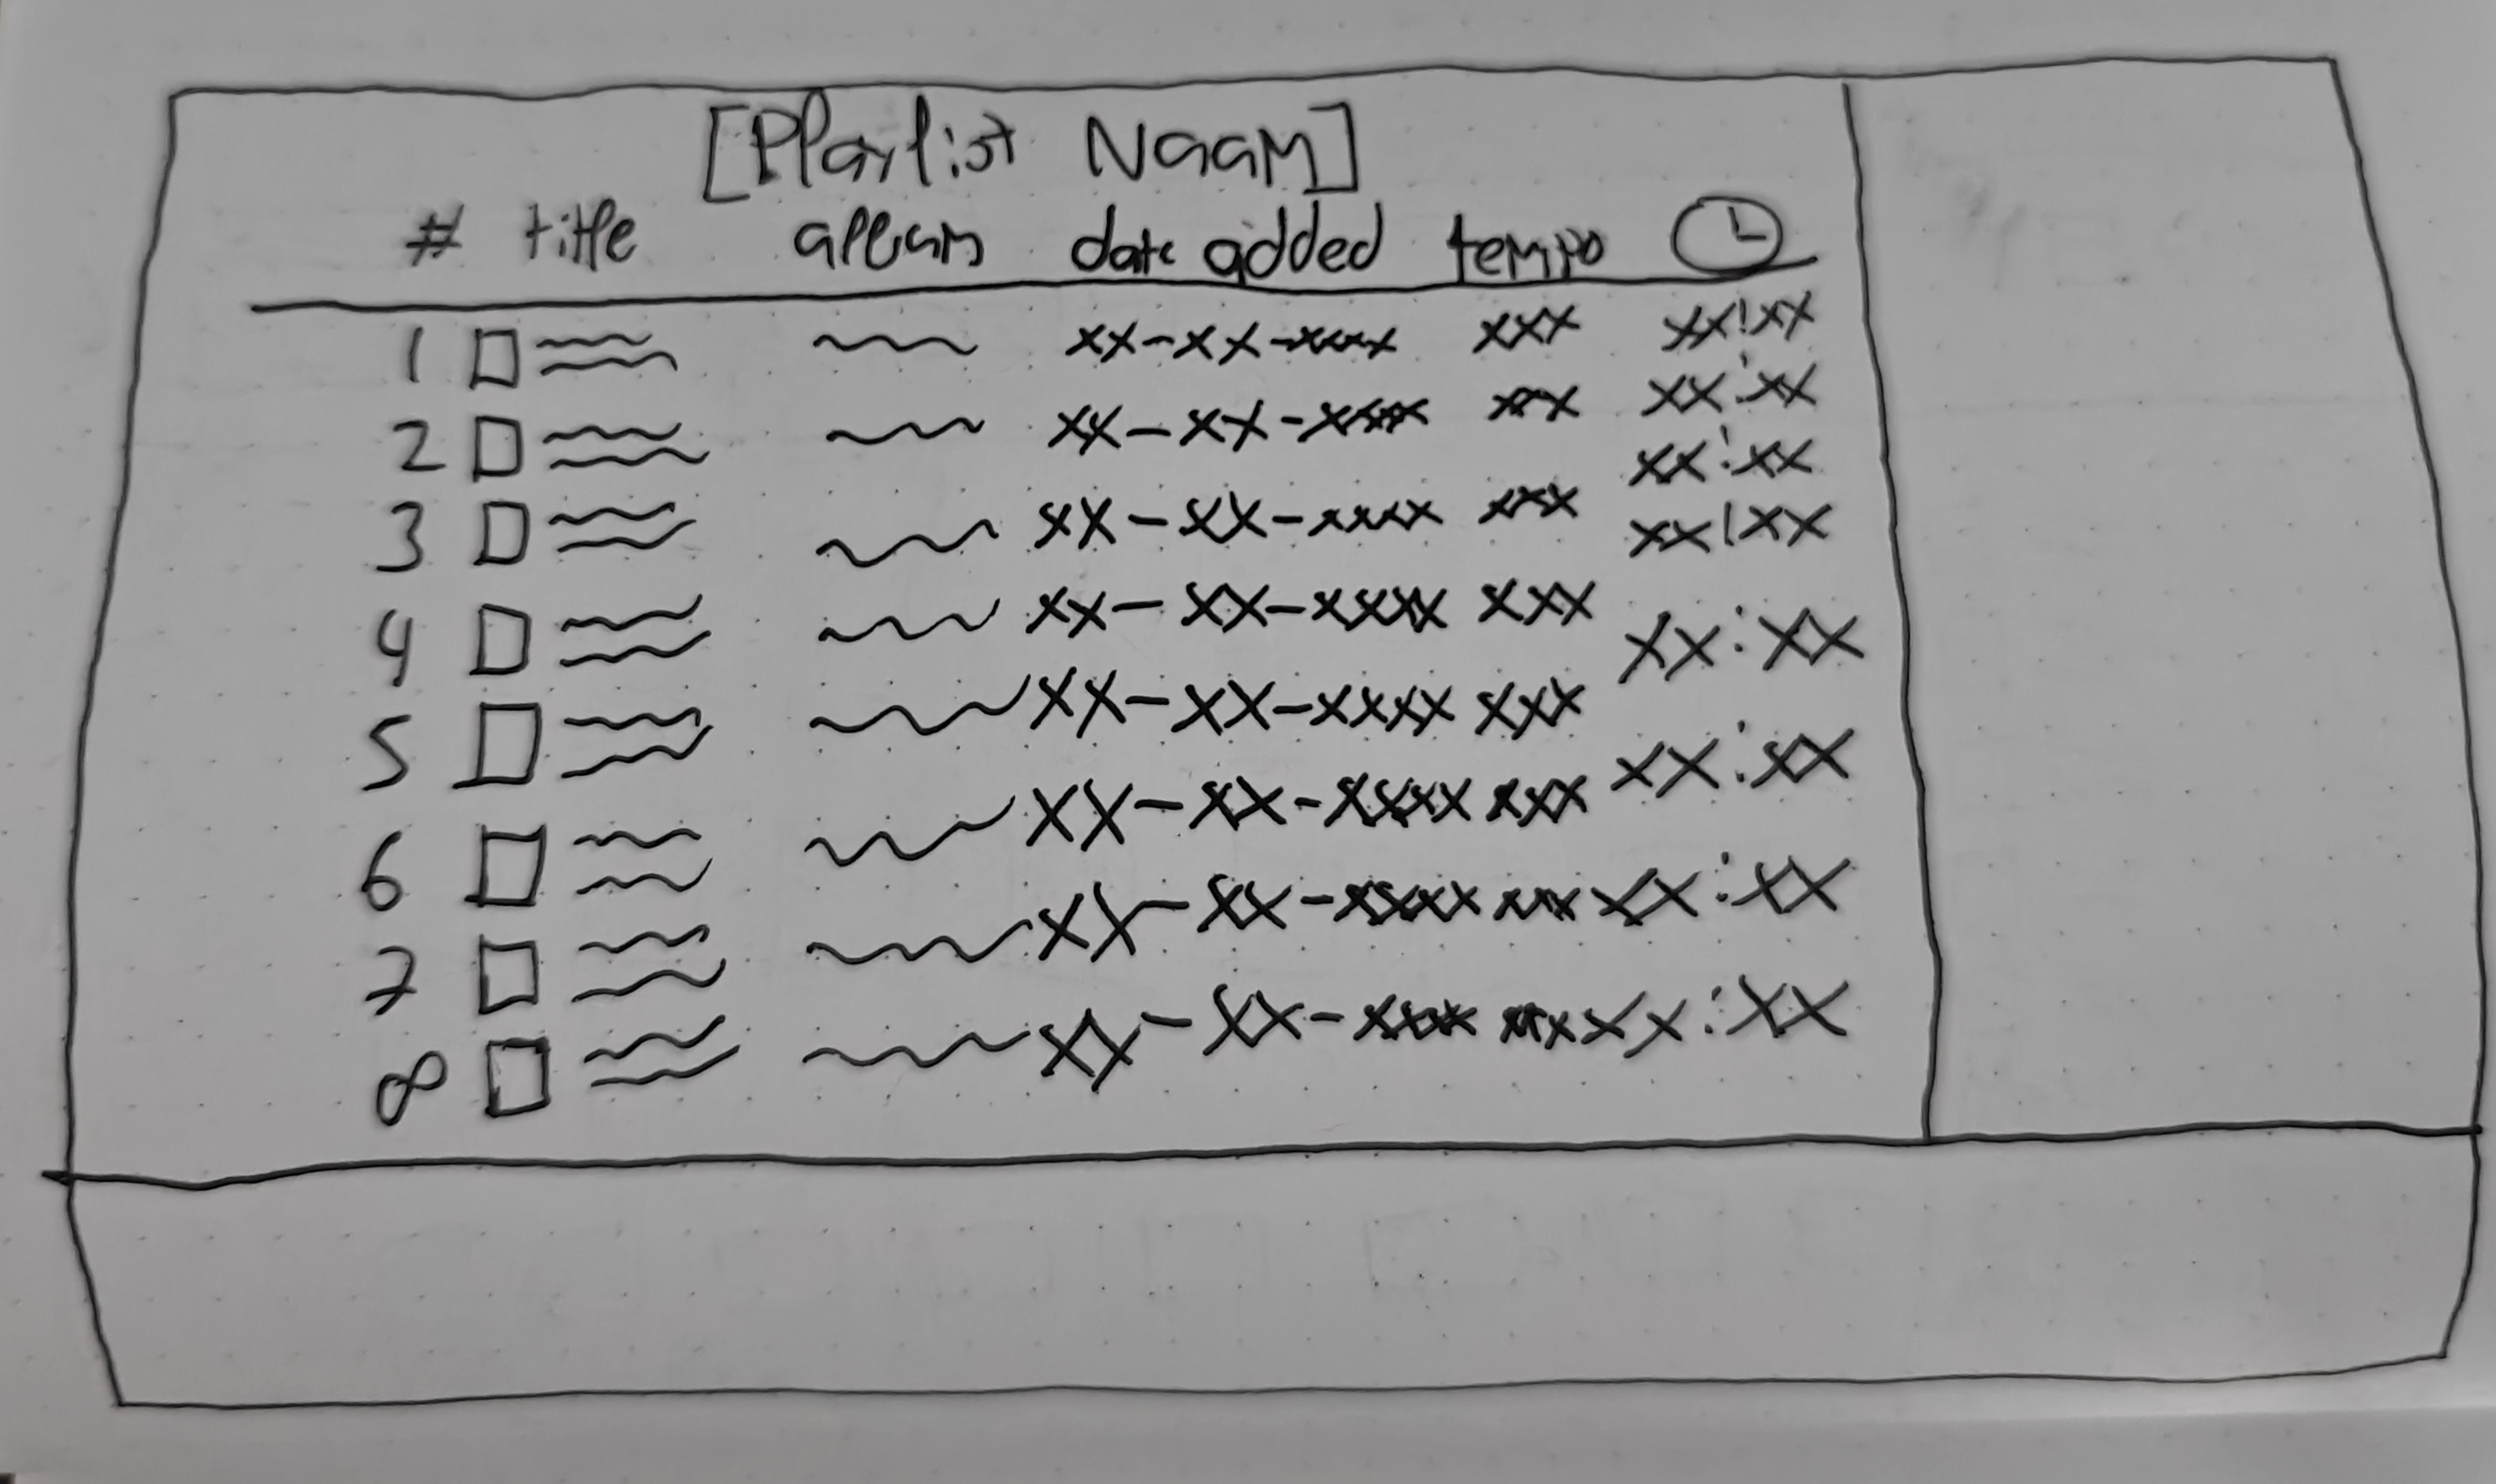 [Playlist Naam]
# title album date added tempo
1 xx-xx-xxxx xxx xx:xx
2 xx-xx-xxxx xxx xx:xx
3 xx-xx-xxxx xxx xx:xx
4 xx-xx-xxxx xxx xx:xx
5 xx-xx-xxxx xxx xx:xx
6 xx-xx-xxxx xxx xx:xx
7 xx-xx-xxxx xxx xx:xx
8 xx-xx-xxxx xxx xx:xx